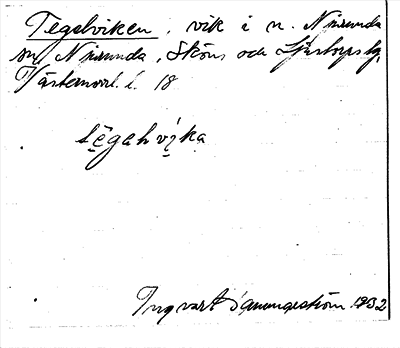 Tegelviken, vik i n. Njurunda
sn, Njurunda, Sköns och Ljustorps tg,
Västernorrl. l. 18
tēgəlvika
Ingvart 1932